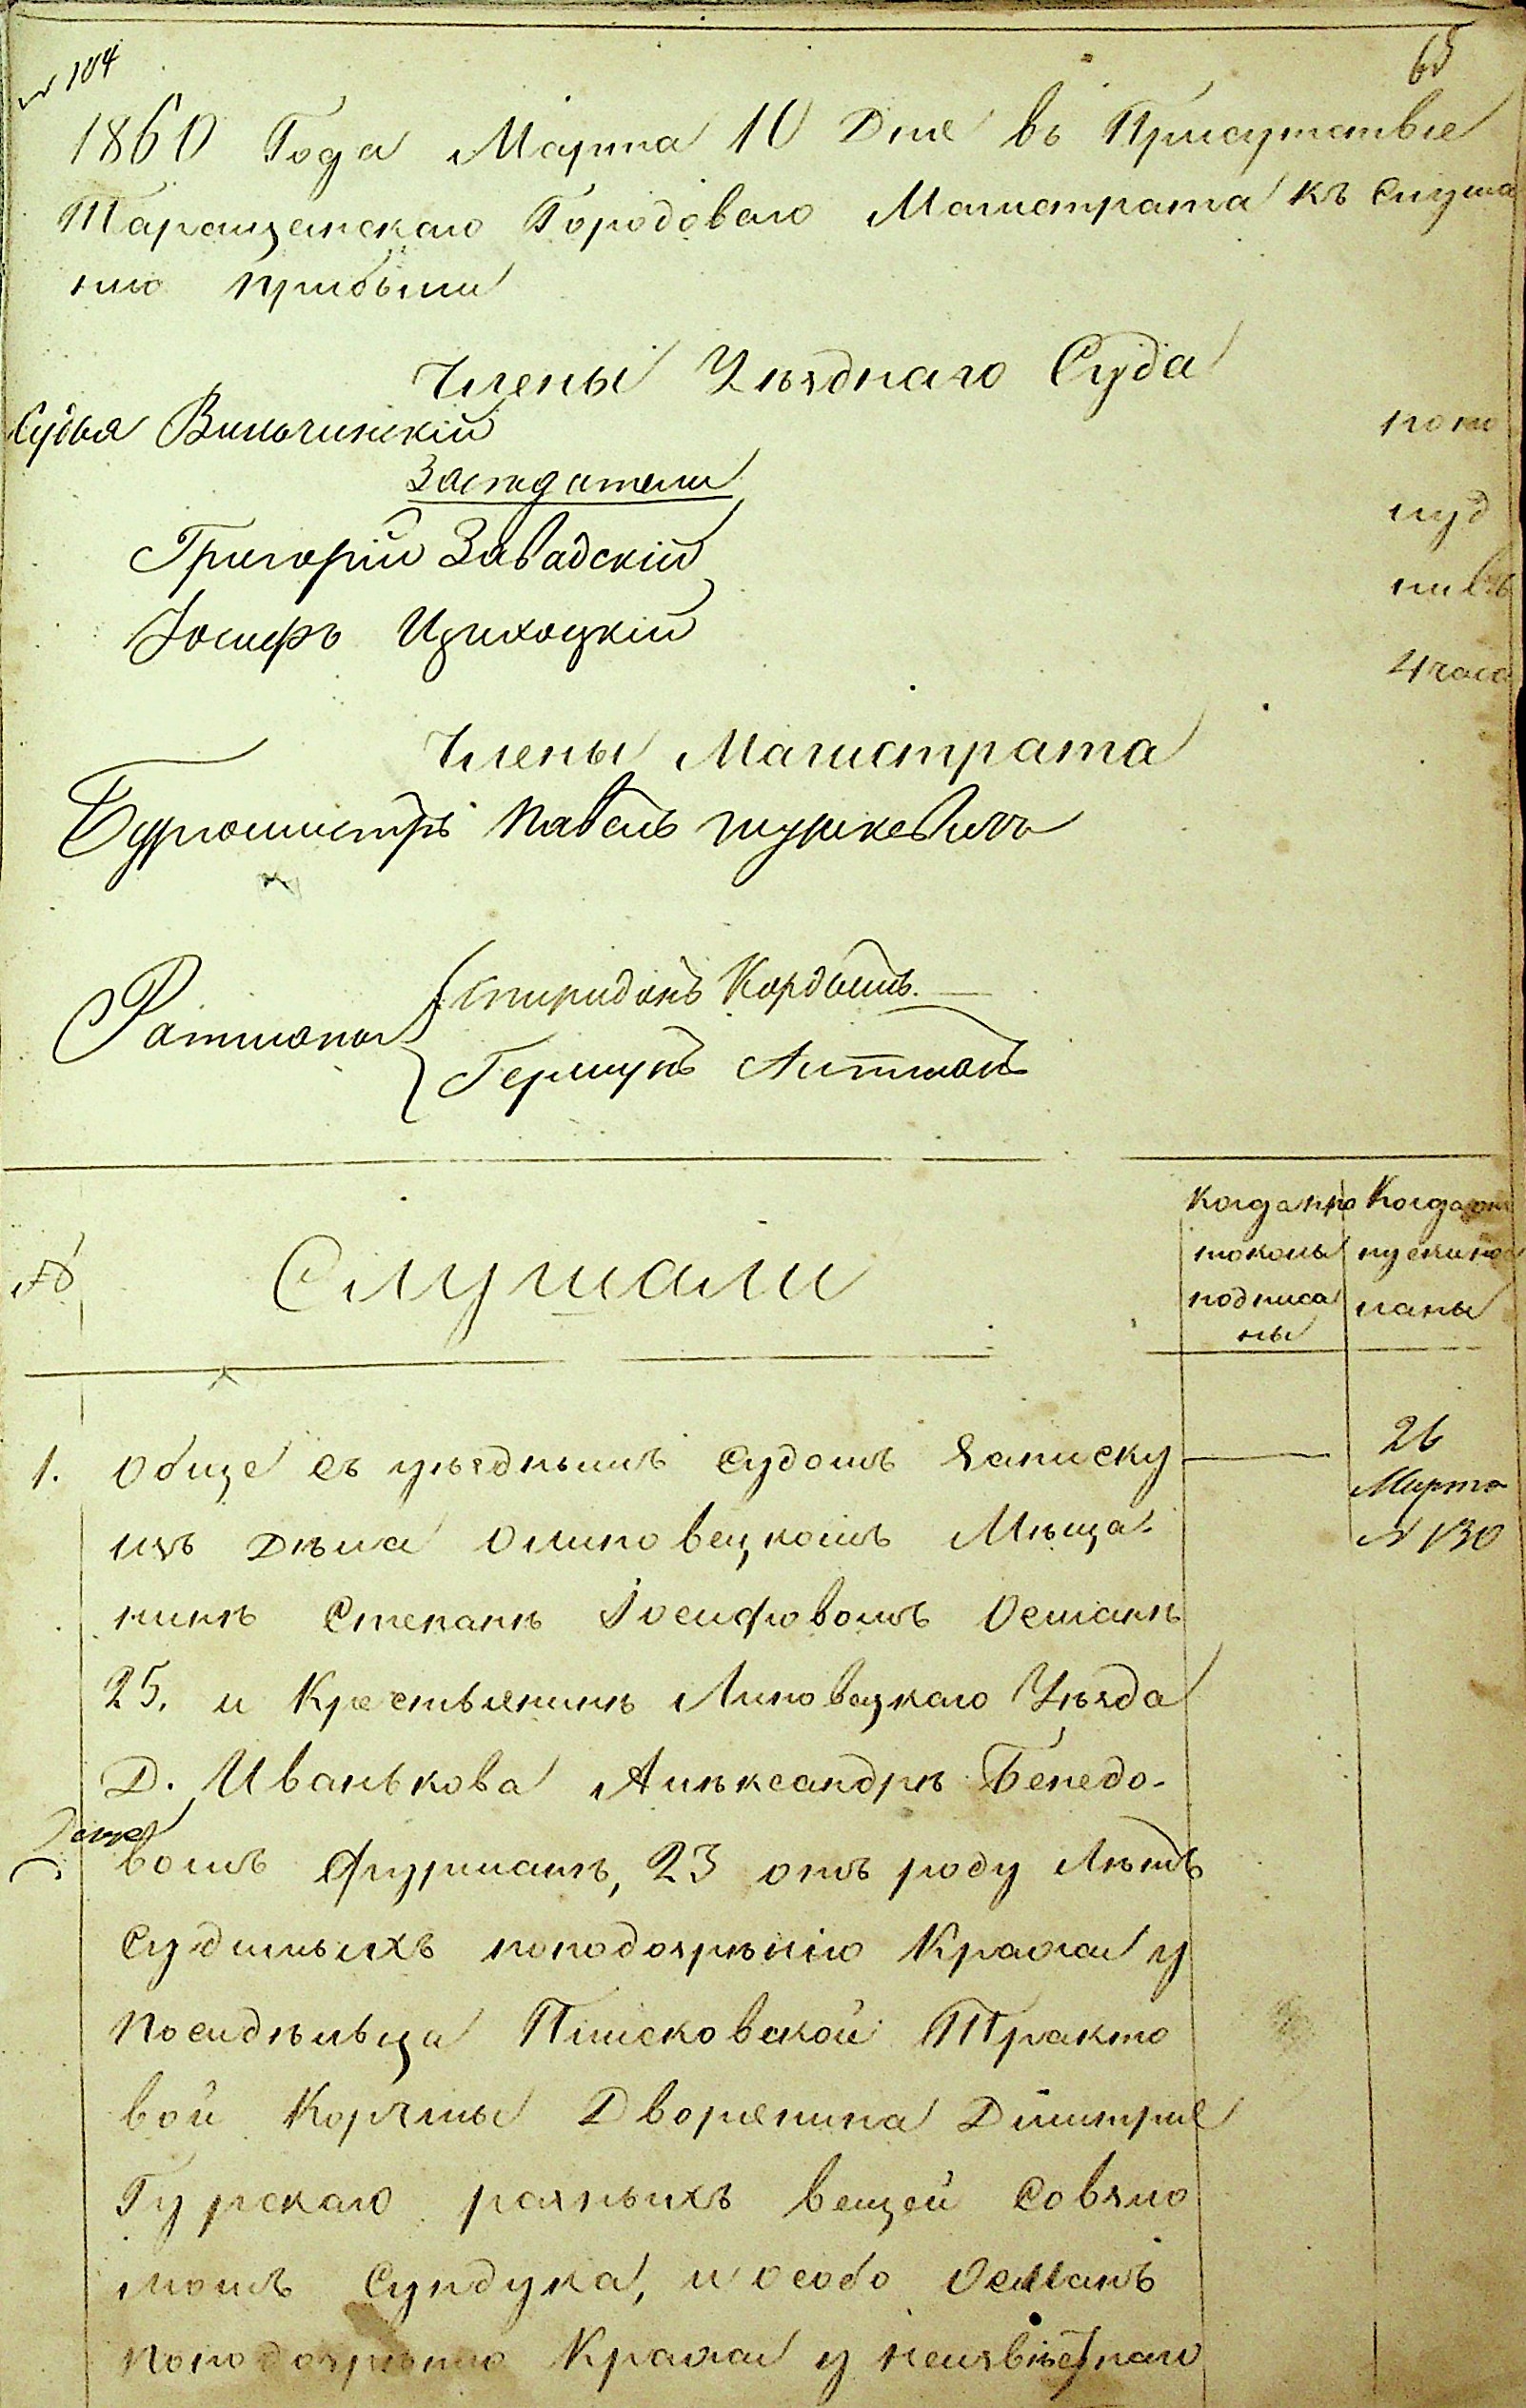 № 104
65
1860 Года Марта 10 Дня въ Присутствіе
Таращанскаго Городоваго Магистрата къ слуша
нію прибыли
Члены Уѣзднаго Суда
Судья Вильчинскій
Засѣдатели
Григорій Завадскій
Іосифъ
по по
луд
ни въ
4 часа
Члены Магистрата
Бургомистръ Павелъ
Ратманы
Спиридонъ Кордышъ.
Гершунъ Литманъ
№
Слушали
Когда про
токолы
подписа
ны
Когда от
пуски по
сланы
1. Обще съ уѣзднымъ судомъ записку
изъ дѣла о липовецкомъ Мѣща-
нинѣ Степанѣ Іосифовомъ Османѣ
25. и Крестьянинѣ Липовецкаго Уѣзда
Д. Иванькова Алѣксандрѣ Бенедо-
вомъ Фурманѣ, 23 отъ роду лѣтъ
судимыхъ поподозрѣнію Кражи у
посидѣльца Плисковской Тракто
вой Корчмы Дворянина Димитрія
Гурскаго разныхъ вещей совзло
момъ сундука, и особо Османъ
поподозрѣнію Кражи у неизвѣстнаго
26
Марта
№ 130